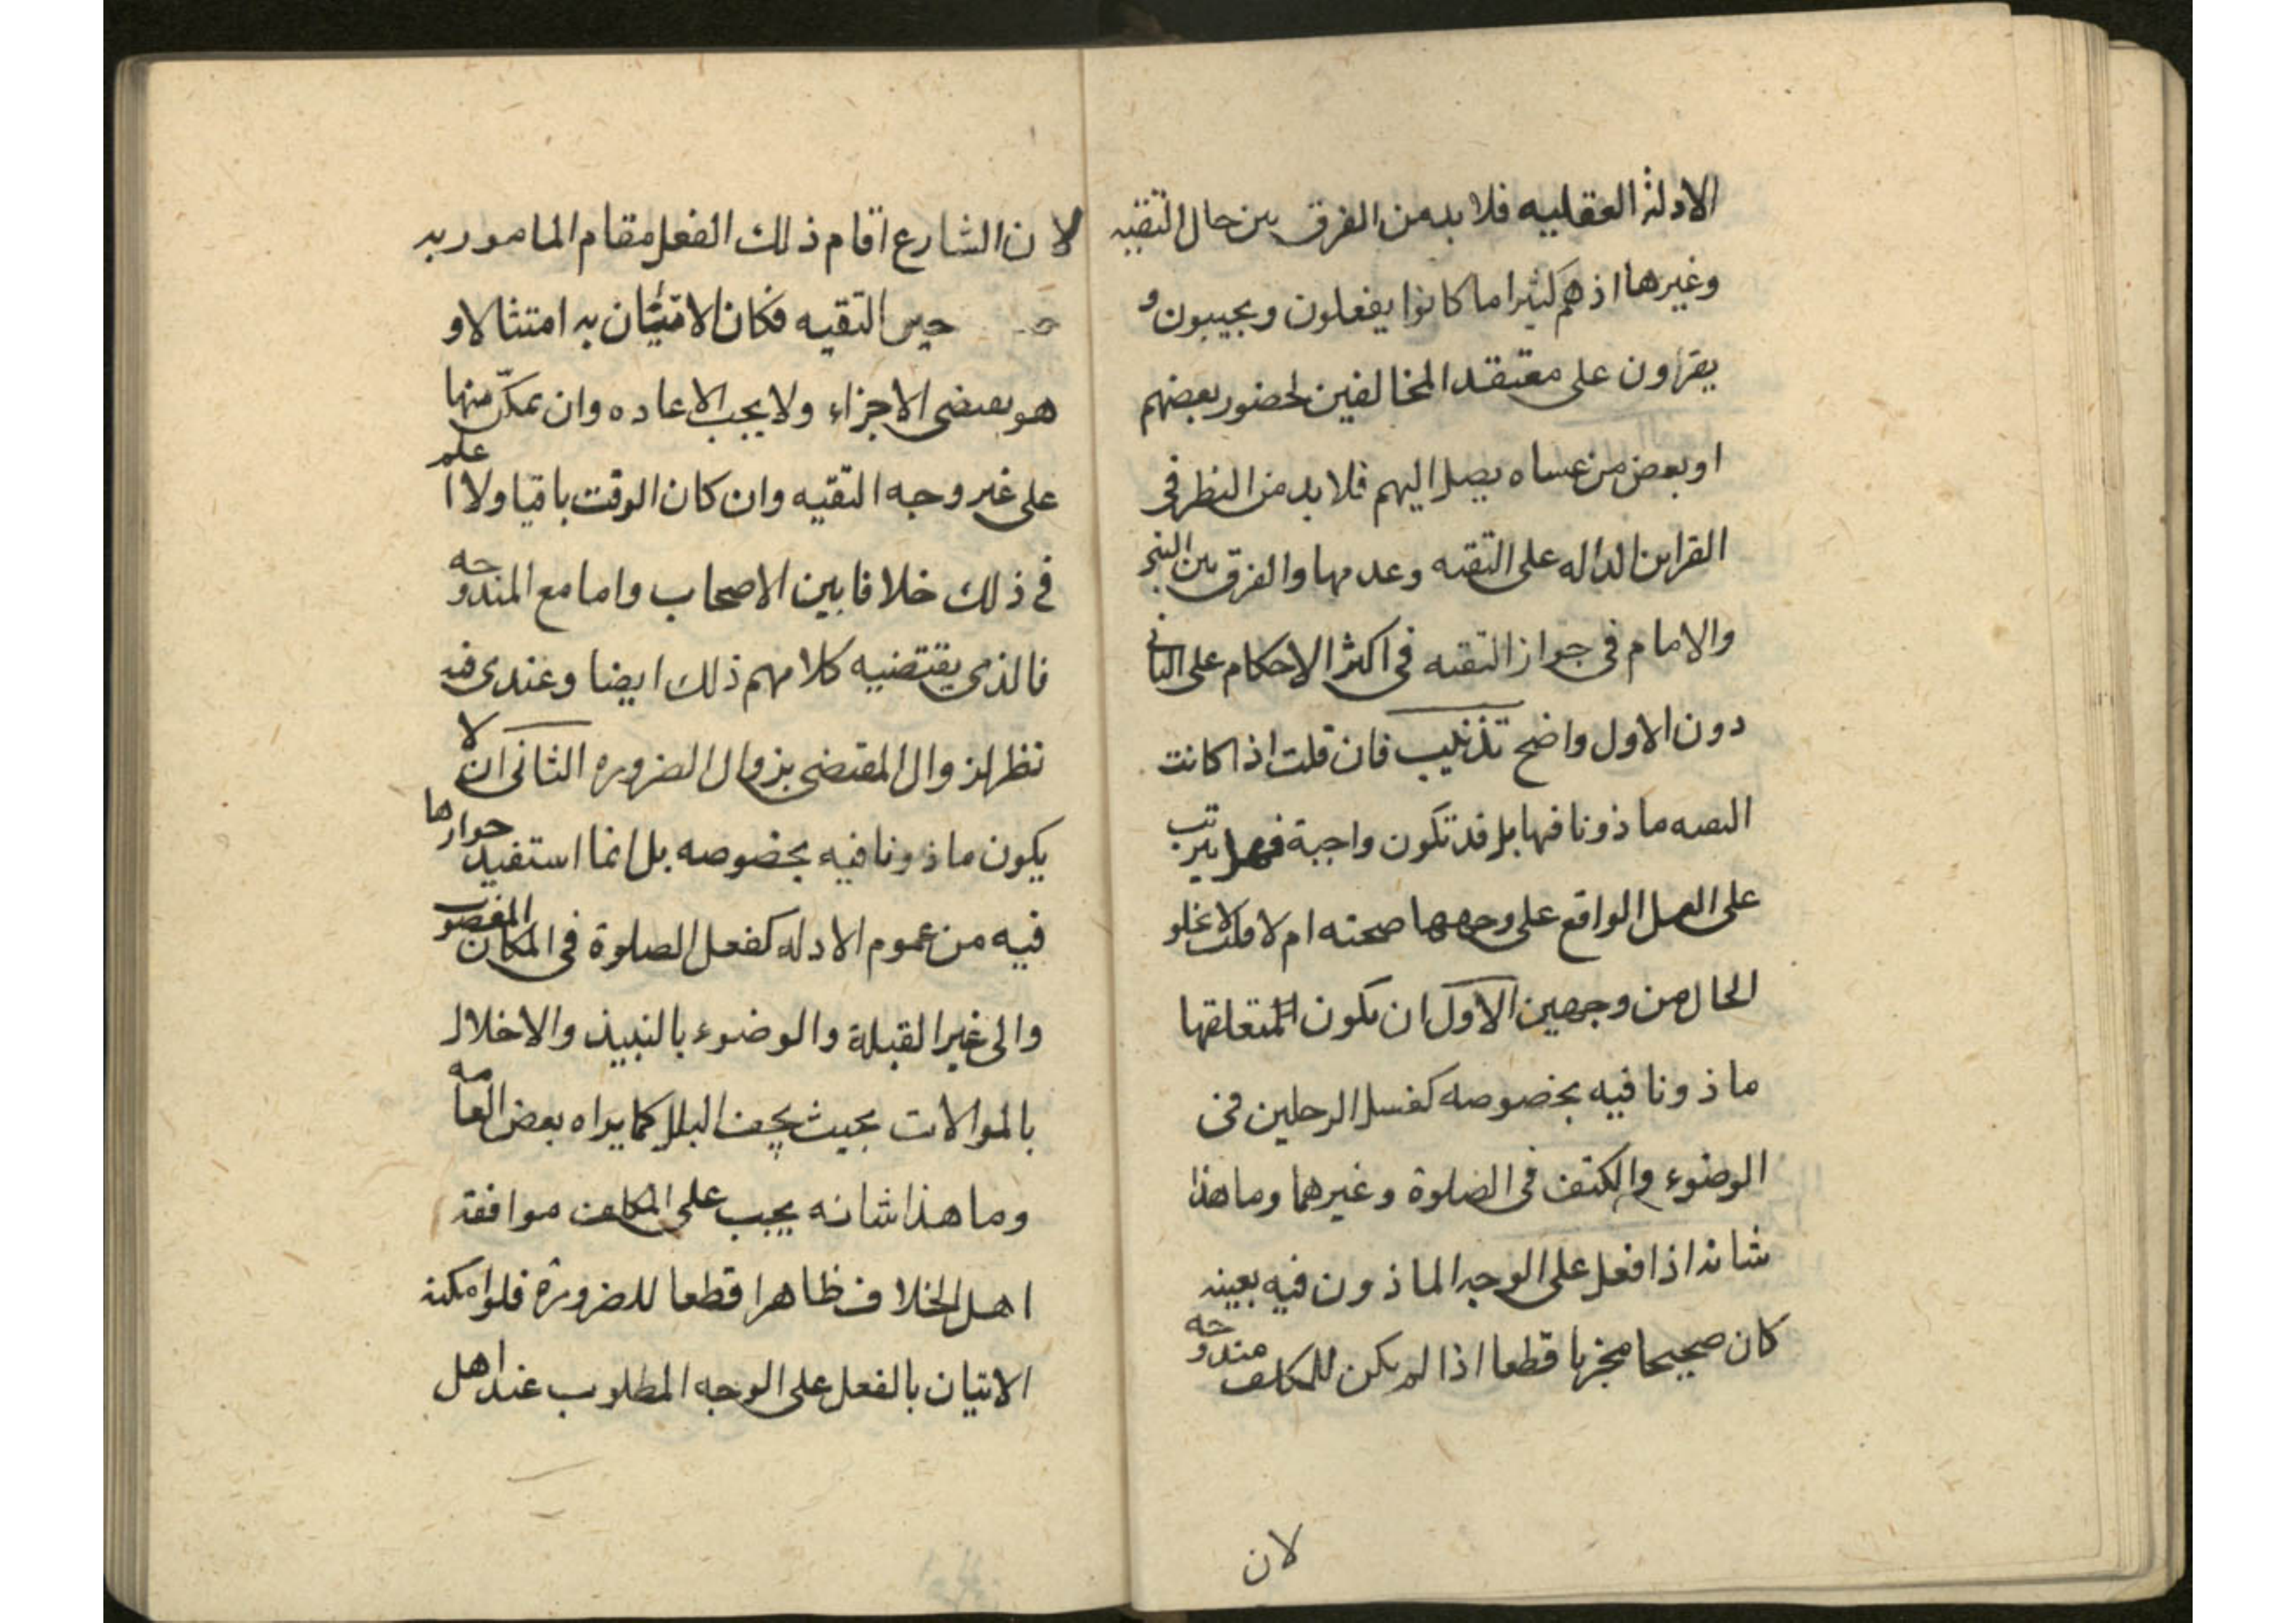 الادلة العقليه فلا بد من الفرق بين حال التقيه
وغيرها اذ هم كثيرا ما كانوا يفعلون ويجيبون و
يقرأون على معتقد المخالفين لحضور بعضهم
او بعض من عساه يصل اليهم فلا بد من النظر فى
القراين الداله على التقيه وعدمها والفرق بين النبى
والامام فى جواز التقيه فى اكثر الاحكام على الثانى
دون الاول واضح تذنيب فان قلت اذا كانت
التقيه ماذونا فيها بل قد تكون واجبة فهل يترتب
على الفعل الواقع على وجهها صحته ام لا قلت لا يخلو
الحال من وجهين الاول ان يكون متعلقها
ماذونا فيه بخصوصه كغسل الرجلين فى
الوضوء والكتف فى الصلوة وغيرهما وما هذا
شانه اذا فعل على الوجه الماذون فيه بعينه
كان صحيحا مجزيا قطعا اذا لم يكن للمكلف مندوحه
لان
لان الشارع اقام ذلك الفعل مقام المامور به
حين التقيه فكان الاتيان به امتثالا و
هو يقتضى الاجزاء ولا يجب الاعاده وان تمكّن منها
على غير وجه التقيه وان كان الوقت باقيا ولا اعلم
فى ذلك خلافا بين الاصحاب واما مع المندوحه
فالذى يقتضيه كلامهم ذلك ايضا وعندى فيه
نظر لزوال المقتضى بزوال الضروره الثانى ان لا
يكون ماذونا فيه بخصوصه بل انما استفيد جوازها
فيه من عموم الادله كفعل الصلوة فى المكان المغصوب
والى غير القبلة والوضوء بالنبيذ والاخلال
بالموالات بحيث يجف البلل كما يراه بعض العامه
وما هذا شانه يجب على المكلف موافقة
اهل الخلاف ظاهرا قطعا للضرورة فلو امكنه
الاتيان بالفعل على الوجه المطلوب عند اهل